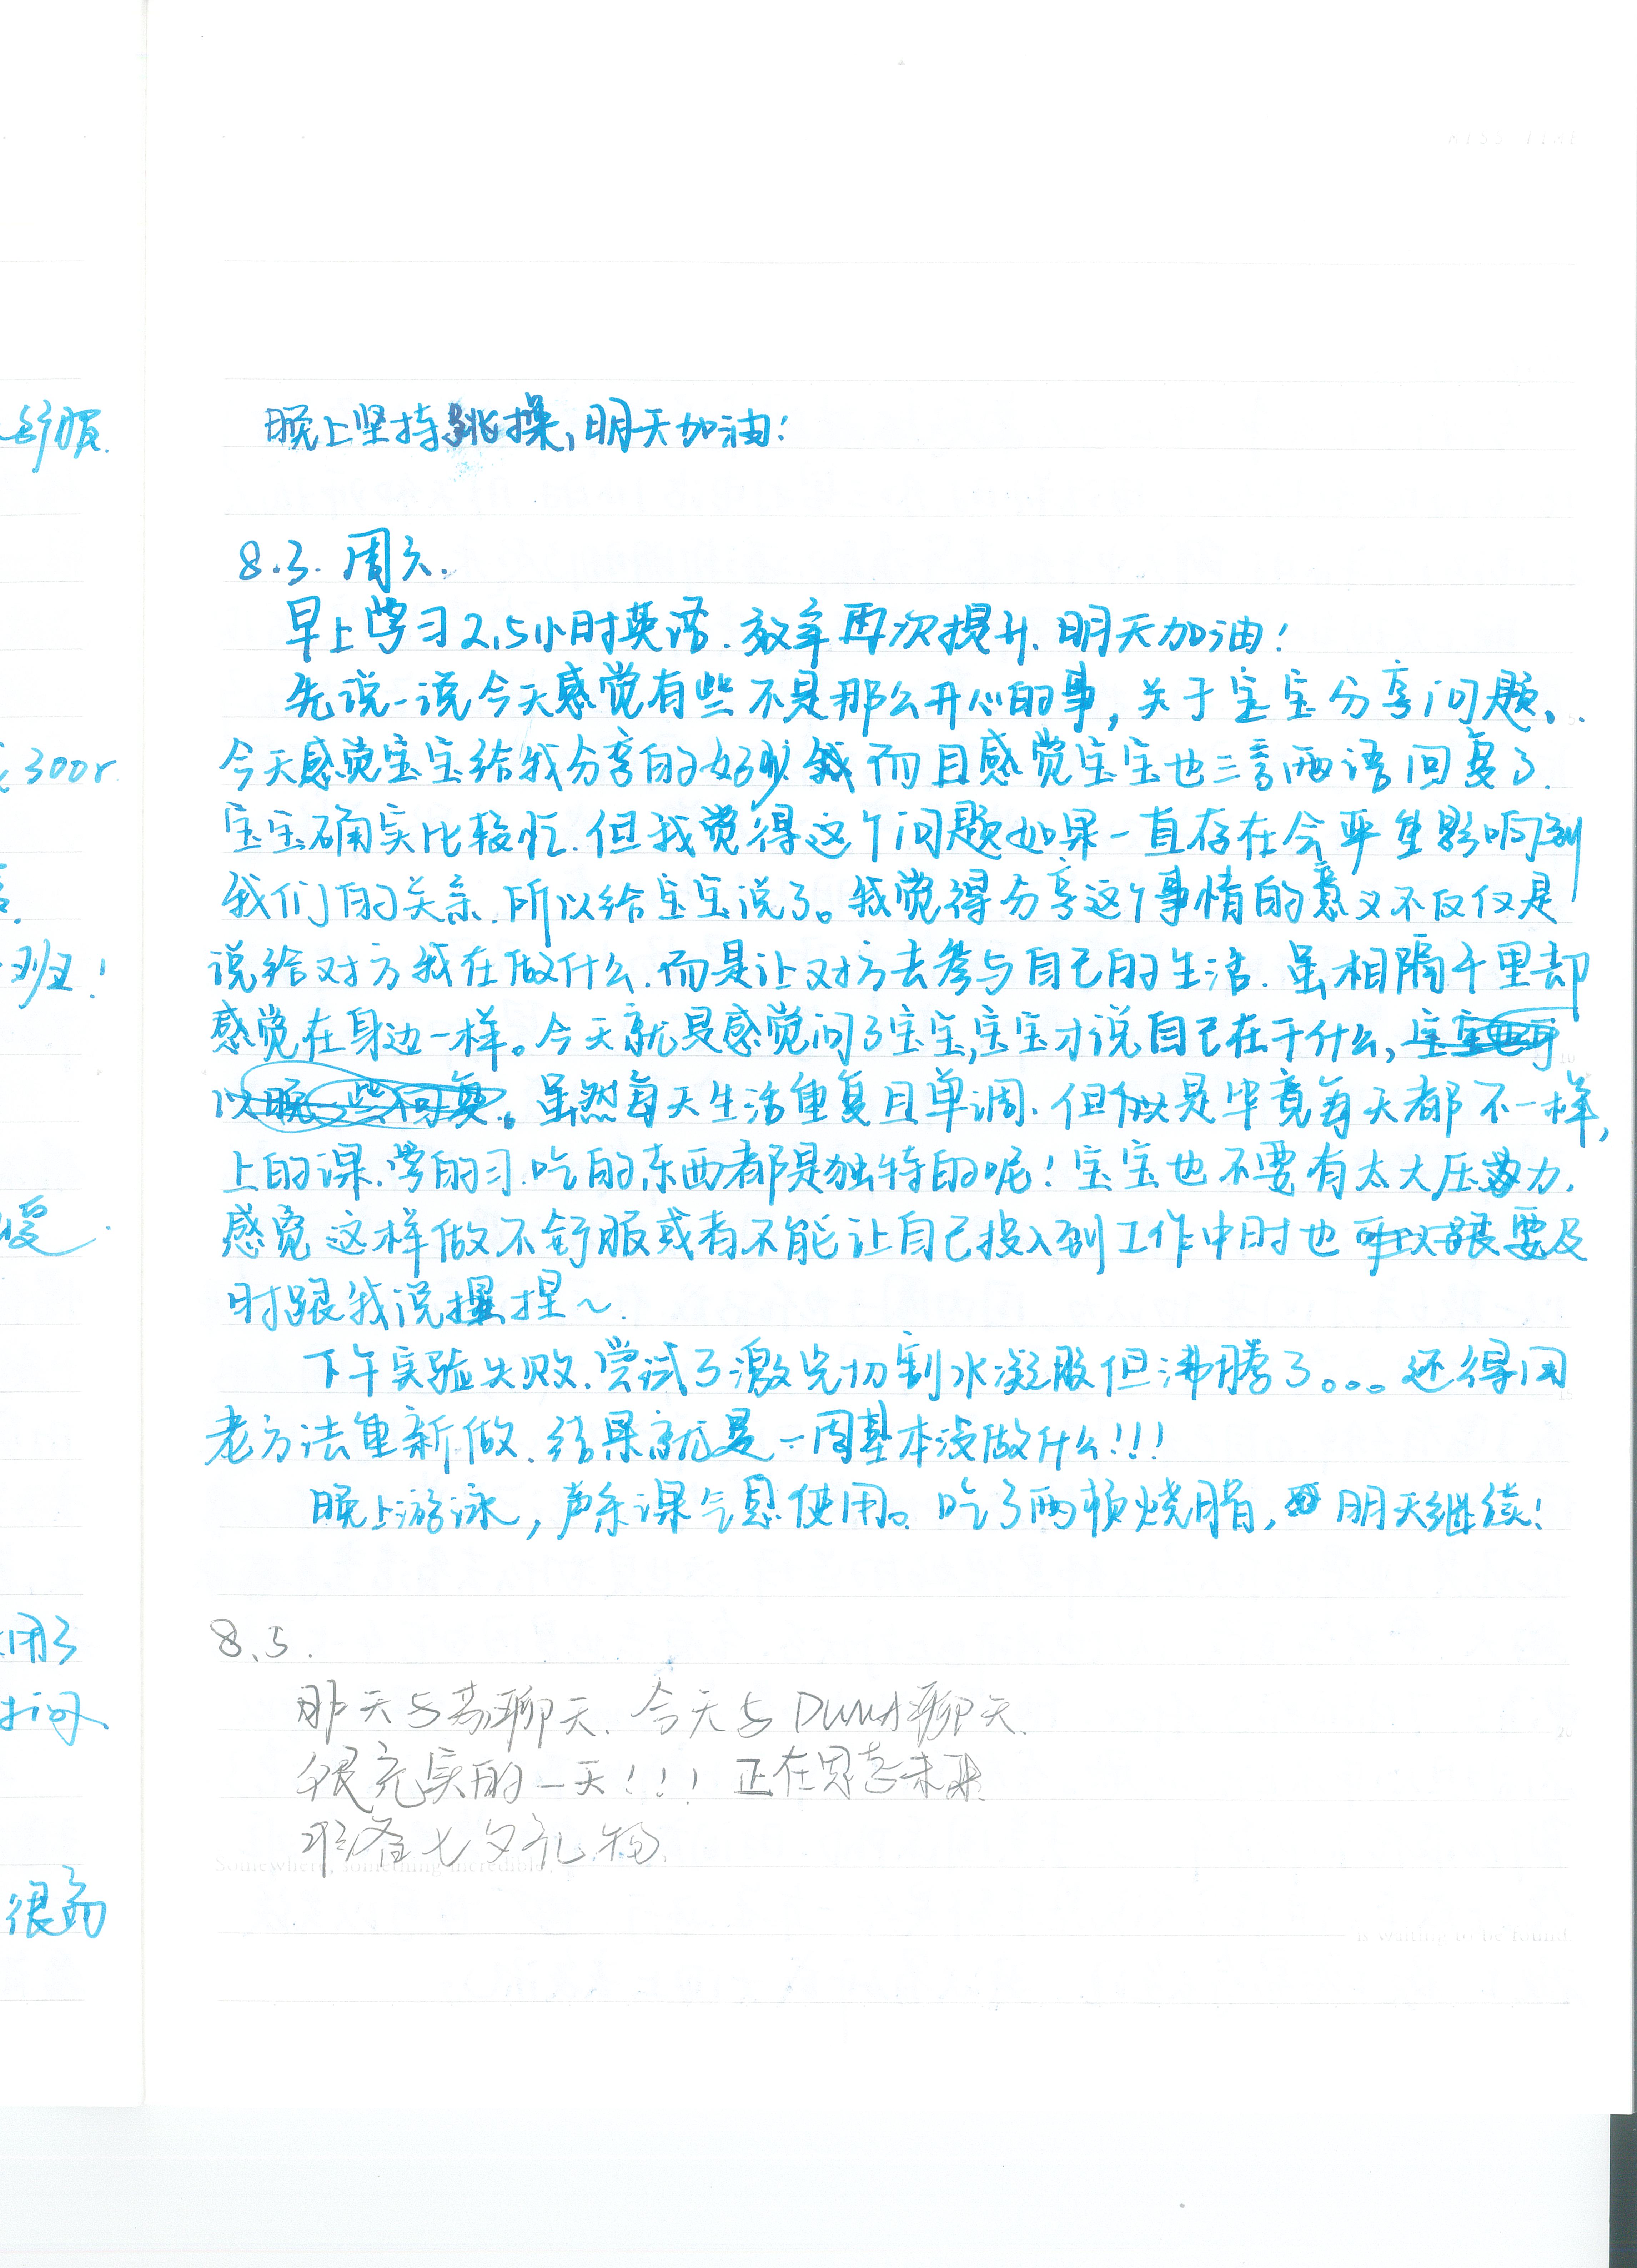 舒服.
300r
班!
爱.
闭了
打问.
很高
晚上坚持跳操,明天加油!
8.3. 周六.
早上学习2.5小时英语.效率再次提升.明天加油!
先说一说今天感觉有些不是那么开心的事,关于宝宝分享问题.
今天感觉宝宝给我分享的好少 而且感觉宝宝也三言两语回复了.
宝宝确实比较忙.但我觉得这个问题如果一直存在会严重影响到
我们的关系.所以给宝宝说了。我觉得分享这个事情的意义不仅仅是
说给对方我在做什么.而是让对方去参与自己的生活.虽相隔千里却
感觉在身边一样。今天就是感觉问了宝宝,宝宝才说自己在干什么,宝宝也可
以晚一些回复。虽然每天生活重复且单调.但 是毕竟每天都不一样,
上的课.学的习.吃的东西都是独特的呢!宝宝也不要有太大压力.
感觉这样做不舒服或者不能让自己投入到工作中时也可以跟要及
时跟我说捏~.
下午实验失败.尝试了激光切割水凝胶但沸腾了。。。还得用
老方法重新做.结果就是一周基本没做什么!!!
晚上游泳,声乐课气息使用。吃了两顿烧腊,明天继续!
8.5.
昨天与 聊天.今天与 聊天.
很充实的一天!!! 正在思考未来
准备七夕礼物.
Somewhere, something incredible
is waiting to be found